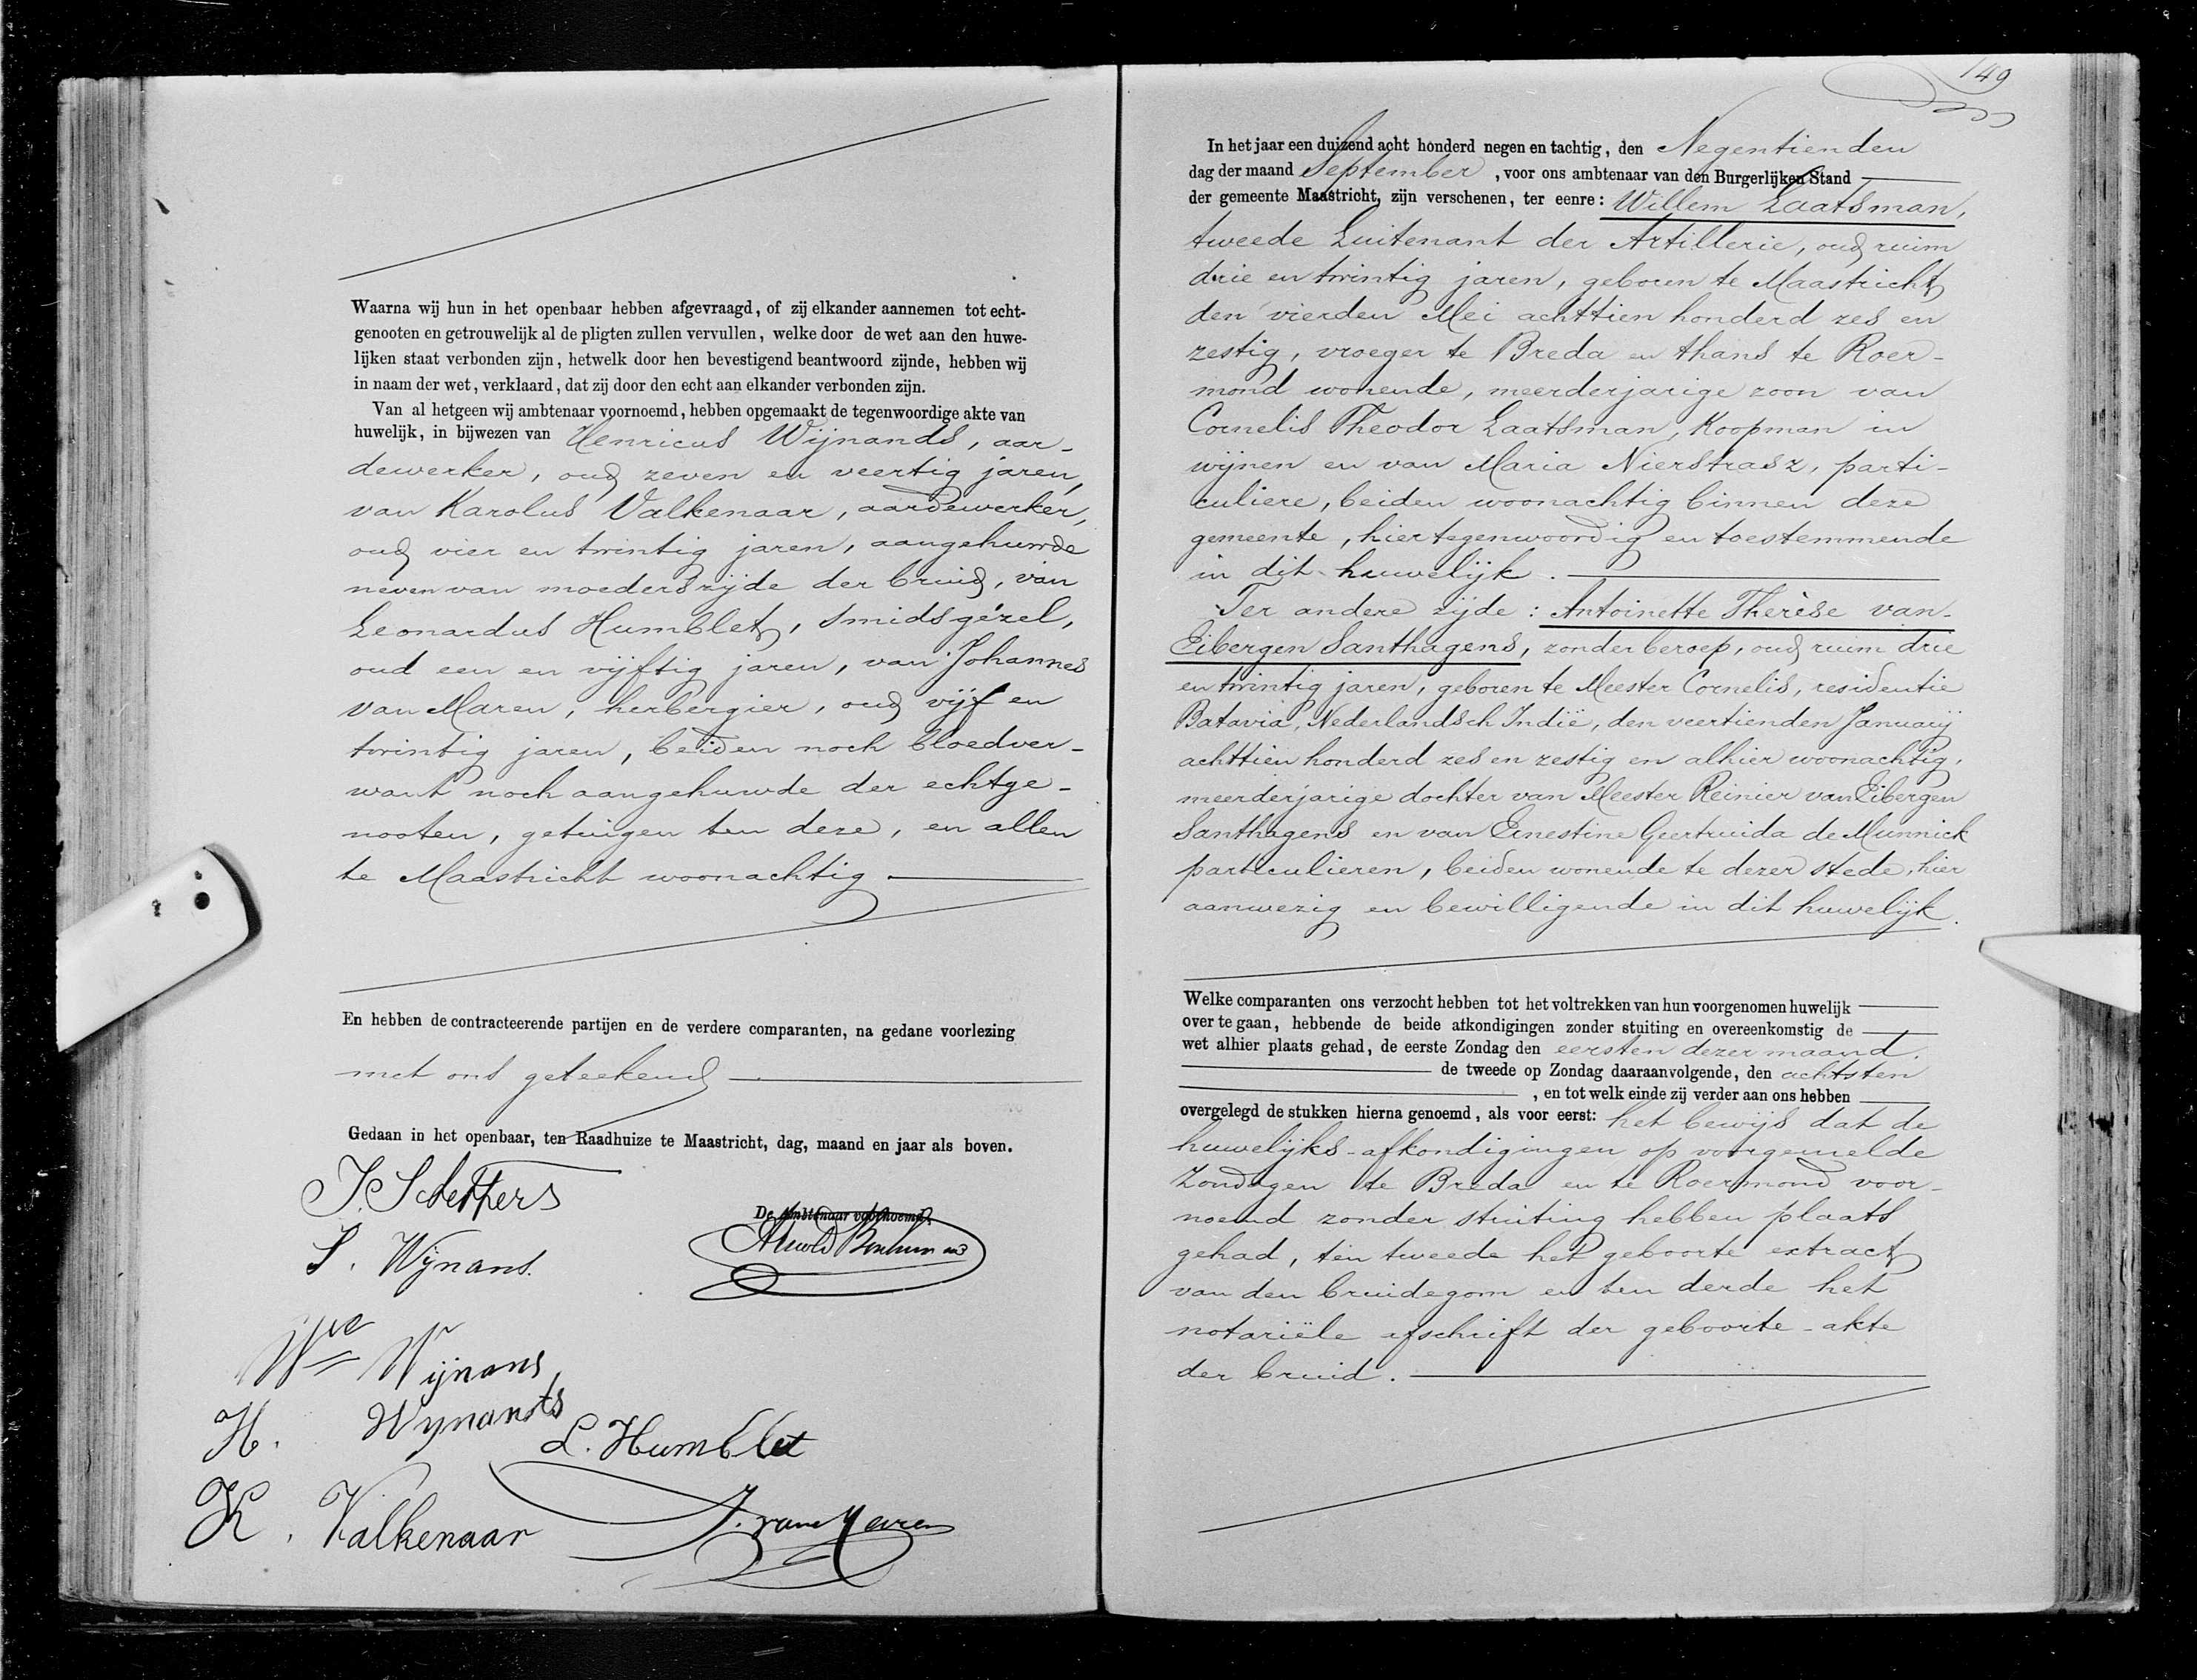 Waarna wij hun in het openbaar hebben afgevraagd, of zij elkander aannemen tot echt-
genooten en getrouwelijk al de pligten zullen vervullen, welke door de wet aan den huwe-
lijken staat verbonden zijn, hetwelk door hen bevestigend beantwoord zijnde, hebben wij
in naam der wet, verklaard, dat zij door den echt aan elkander verbonden zijn.
Van al hetgeen wij ambtenaar voornoemd, hebben opgemaakt de tegenwoordige akte van
huwelijk, in bijwezen van Henricus Wijnands, aar-
dewerker, oud zeven en veertig jaren,
van Karolus Valkenaar, aardewerker,
oud vier en twintig jaren, aangehuwde
neven van moederszijde der bruid, van
Leonardus Humblet, smidsgezel,
oud een en vijftig jaren, van Johannes
van Maren, herbergier, oud vijf en
twintig jaren, beiden noch bloedver-
want noch aangehuwde der echtge-
nooten, getuigen ten deze, en allen
te Maastricht woonachtig
En hebben de contracteerende partijen en de verdere comparanten, na gedane voorlezing
met ons geteekend
Gedaan in het openbaar, ten Raadhuize te Maastricht, dag, maand en jaar als boven.
De ambtenaar voornoemd,
S. Wijnans.
We Wijnans
H. Wijnants
L. Humblet
K. Valkenaar
J. van Maren
149
In het jaar een duizend acht honderd negen en tachtig, den Negentienden
dag der maand September, voor ons ambtenaar van den Burgerlijken Stand
der gemeente Maastricht, zijn verschenen, ter eenre: Willem Laatsman,
tweede Luitenant der Artillerie, oud ruim
drie en twintig jaren, geboren te Maastricht
den vierden Mei achttien honderd zes en
zestig, vroeger te Breda en thans te Roer-
mond wonende, meerderjarige zoon van
Cornelis Theodor Laatsman, Koopman in
wijnen en van Maria Nierstrasz, parti-
culiere, beiden woonachtig binnen deze
gemeente, hier tegenwoordig en toestemmende
in dit huwelijk.
Ter andere zijde: Antoinette Therèse van
Eibergen Santhagens, zonder beroep, oud ruim drie
en twintig jaren, geboren te Meester Cornelis, residentie
Batavia, Nederlandsch Indië, den veertienden Januarij
achttien honderd zes en zestig en alhier woonachtig,
meerderjarige dochter van Meester Reinier van Eibergen
Santhagens en van Ernestine Geertruida de Munnick
particulieren, beiden wonende te dezer stede, hier
aanwezig en bewilligende in dit huwelijk.
Welke comparanten ons verzocht hebben tot het voltrekken van hun voorgenomen huwelijk
over te gaan, hebbende de beide afkondigingen zonder stuiting en overeenkomstig de
wet alhier plaats gehad, de eerste Zondag den eersten dezer maand.
de tweede op Zondag daaraanvolgende, den achtsten
, en tot welk einde zij verder aan ons hebben
overgelegd de stukken hierna genoemd, als voor eerst: het bewijs dat de
huwelijks-afkondigingen op voorgemelde
Zondagen te Breda en te Roermond voor-
noemd zonder stuiting hebben plaats
gehad, ten tweede het geboorte extract
van den bruidegom en ten derde het
notariële afschrift der geboorte-akte
der bruid.